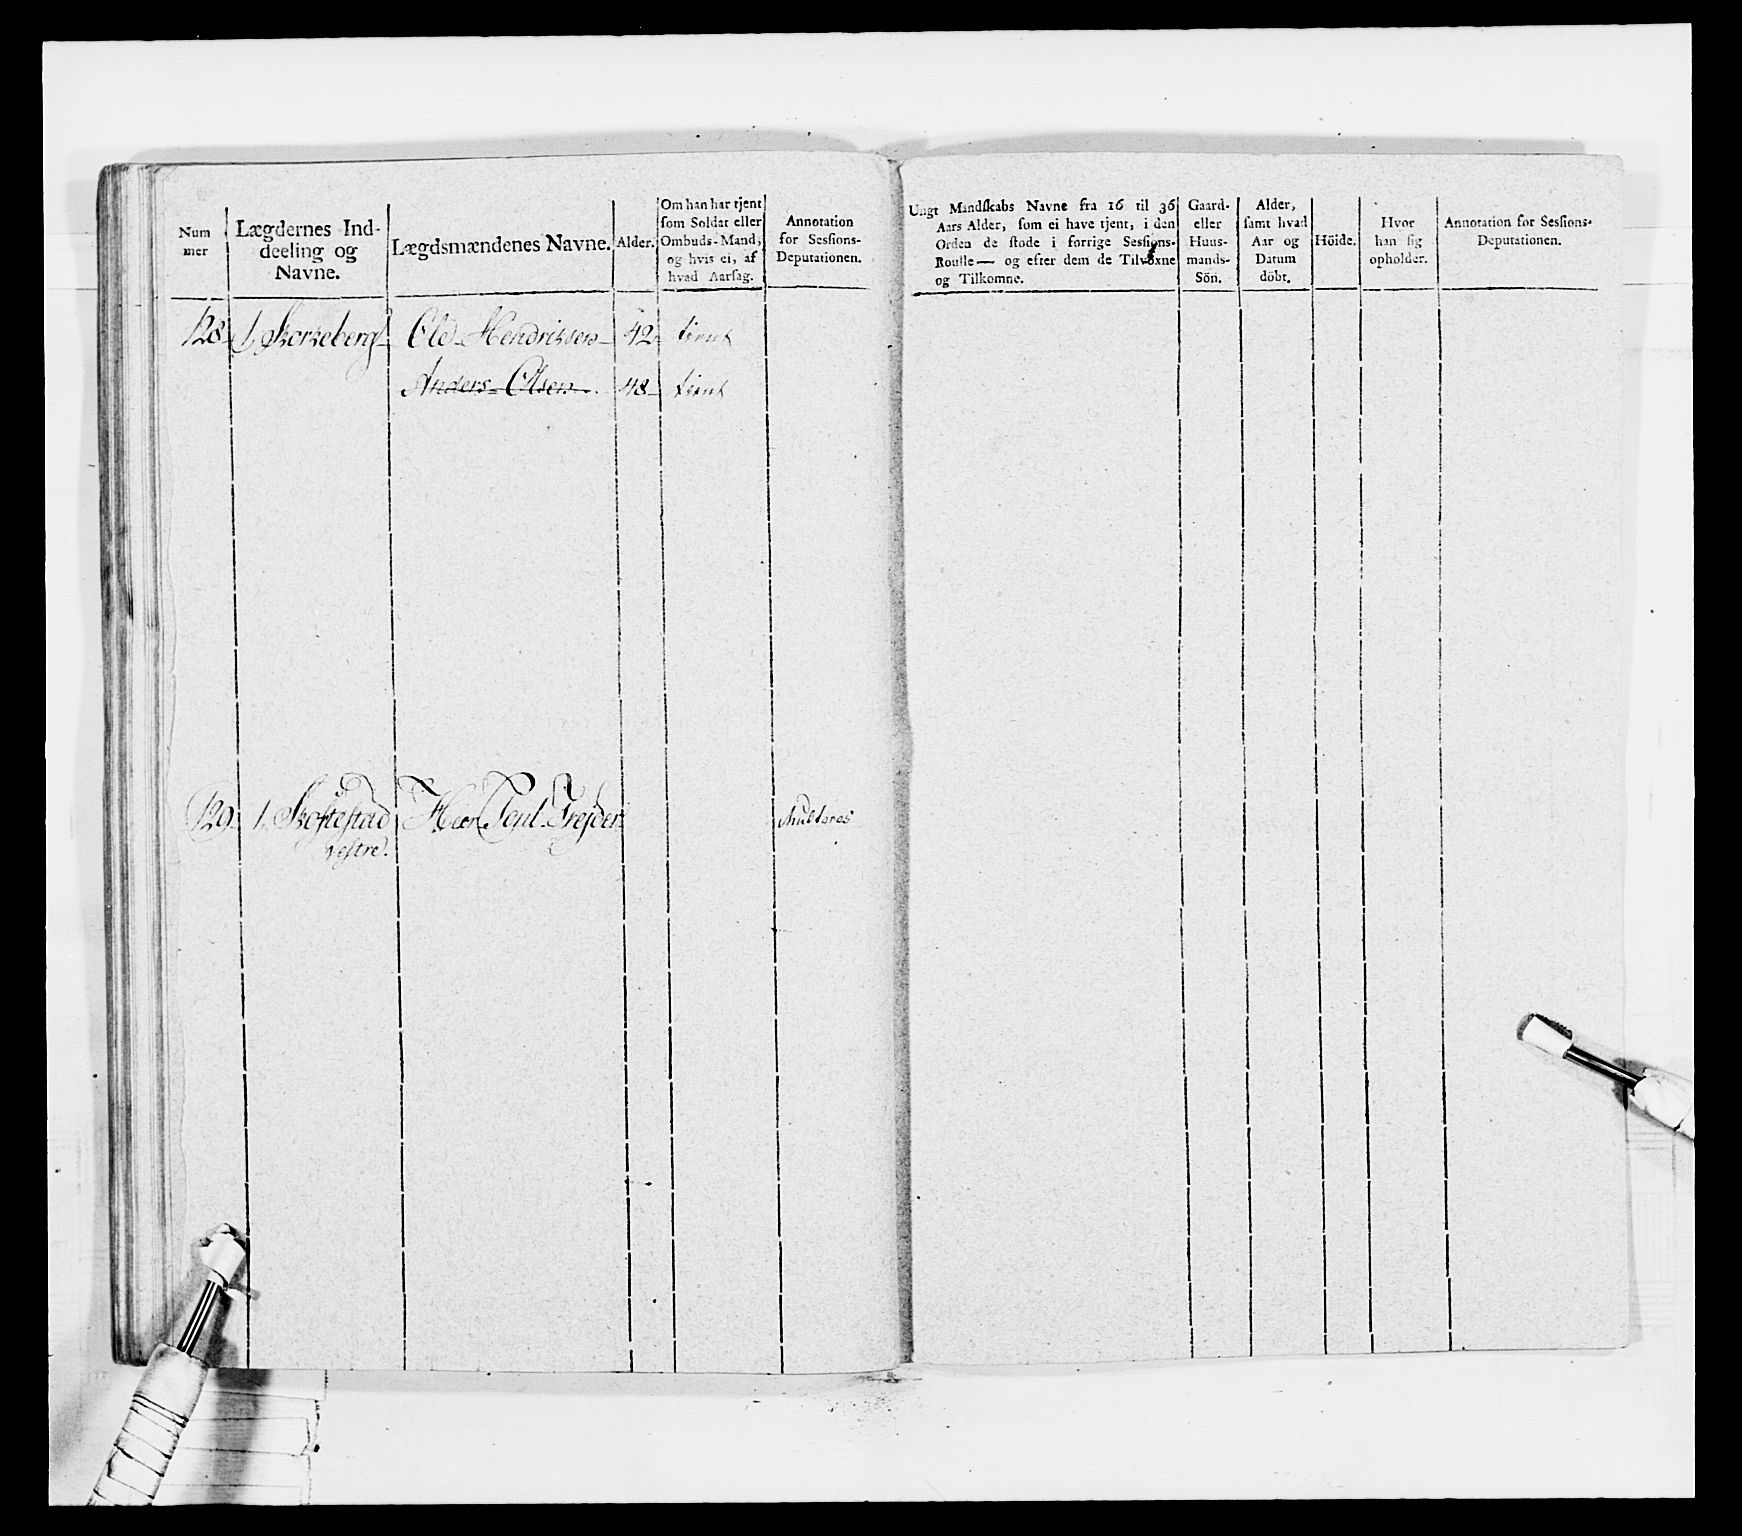 Num
mer
Lægdernes Ind-
deeling og
Navne.
Lægdsmændenes Navne.
Alder.
Om han har tjent
som Soldat eller
Ombuds-Mand,
og hvis ei, af
hvad Aarsag.
Annotation
for Sessions-
Deputationen.
Ungt Mandskabs Navne fra 16 til 36
Aars Alder, som ei have tjent, i den
Orden de stode i forrige Sessions-
Roulle— og efter dem de Tilvoxne
og Tilkomne.
Gaard-
eller
Huus-
mands-
Sön.
Alder,
samt hvad
Aar og
Datum
döbt.
Höide.
Hvor
han sig
opholder.
Annotation for Sessions-
Deputationen.
128 1, Korkeberg Ole Hendriksen 42 tient
Anders Olsen 48 tient
129 1, Skoftestad Herr Poul
Vestre.